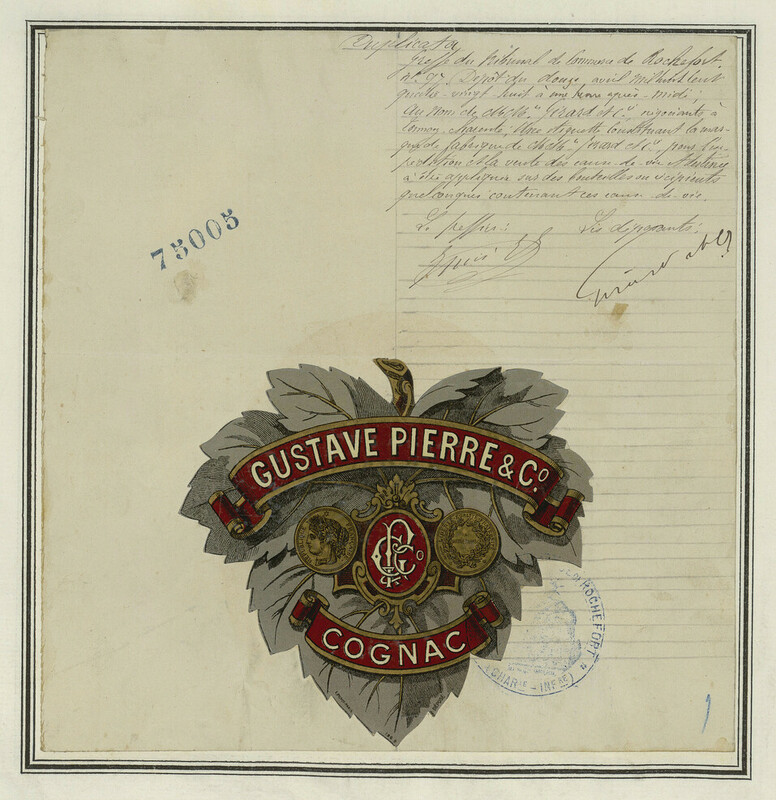 Duplicata
Greffe du Tribunal de Commerce de Rochefort.
n° 97. Dépôt du douze avril mil huit cent
quatre-vingt huit à une heure après-midi,
Au nom de Girard et Cie, négociants à
Tonnay-Charente, Une étiquette constituant la mar-
que de fabrique de Girard et Cie, pour l'ex-
pédition et la vente des eaux-de-vie
à être appliquée sur des bouteilles ou récipients
quelconques contenant ces eaux-de-vie.
Le greffier: Les déposants:
75005
GUSTAVE PIERRE & Co.
GPCo
COGNAC
ROCHEFORT
(CHARte - INFre)